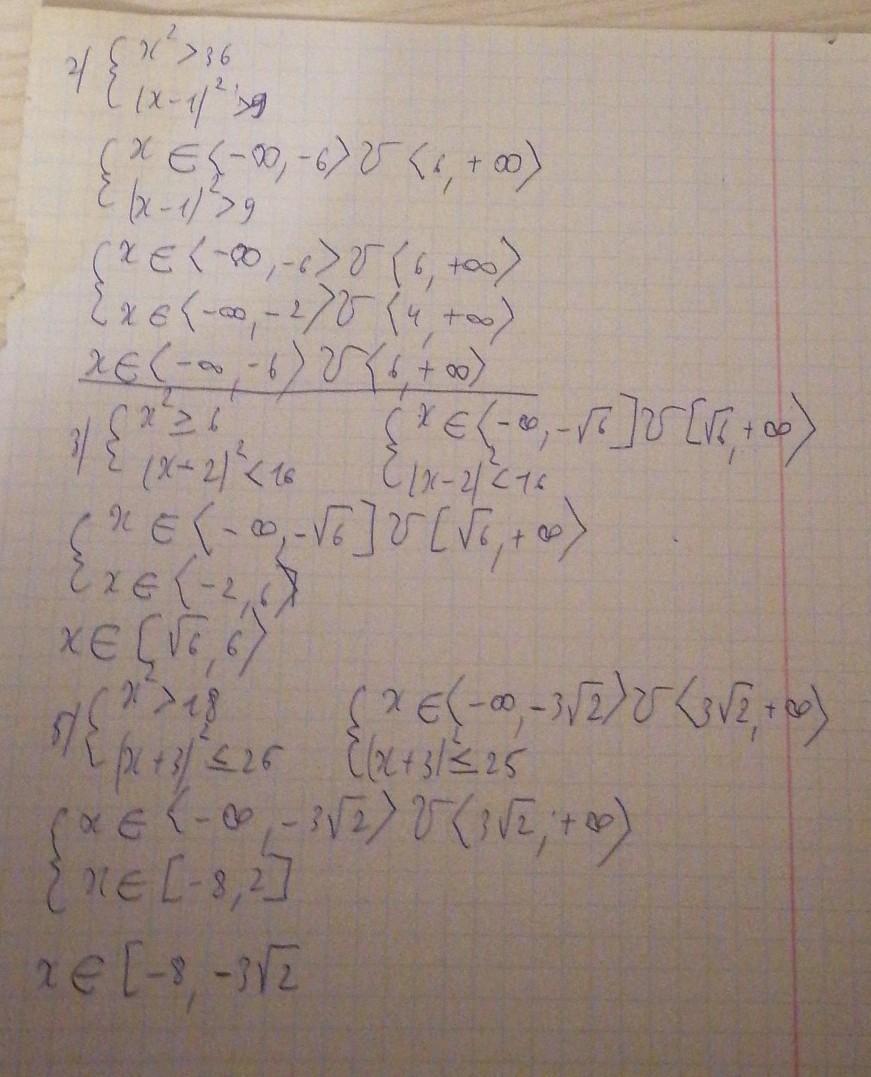 2) { x² > 36
(x-1)² > 9
{ x ∈ ⟨-∞, -6⟩ U ⟨6, +∞⟩
(x-1)² > 9
{ x ∈ ⟨-∞, -6⟩ U ⟨6, +∞⟩
x ∈ ⟨-∞, -2⟩ U ⟨4, +∞⟩
x ∈ ⟨-∞, -6⟩ U ⟨6, +∞⟩
3) { x² ≥ 6
(x-2)² < 16
{ x ∈ ⟨-∞, -√6] U [√6, +∞⟩
(x-2)² < 16
{ x ∈ ⟨-∞, -√6] U [√6, +∞⟩
x ∈ ⟨-2, 6⟩
x ∈ [√6, 6⟩
5) { x² > 18
(x+3)² ≤ 25
{ x ∈ ⟨-∞, -3√2⟩ U ⟨3√2, +∞⟩
(x+3)² ≤ 25
{ x ∈ ⟨-∞, -3√2⟩ U ⟨3√2, +∞⟩
x ∈ [-8, 2]
x ∈ [-8, -3√2